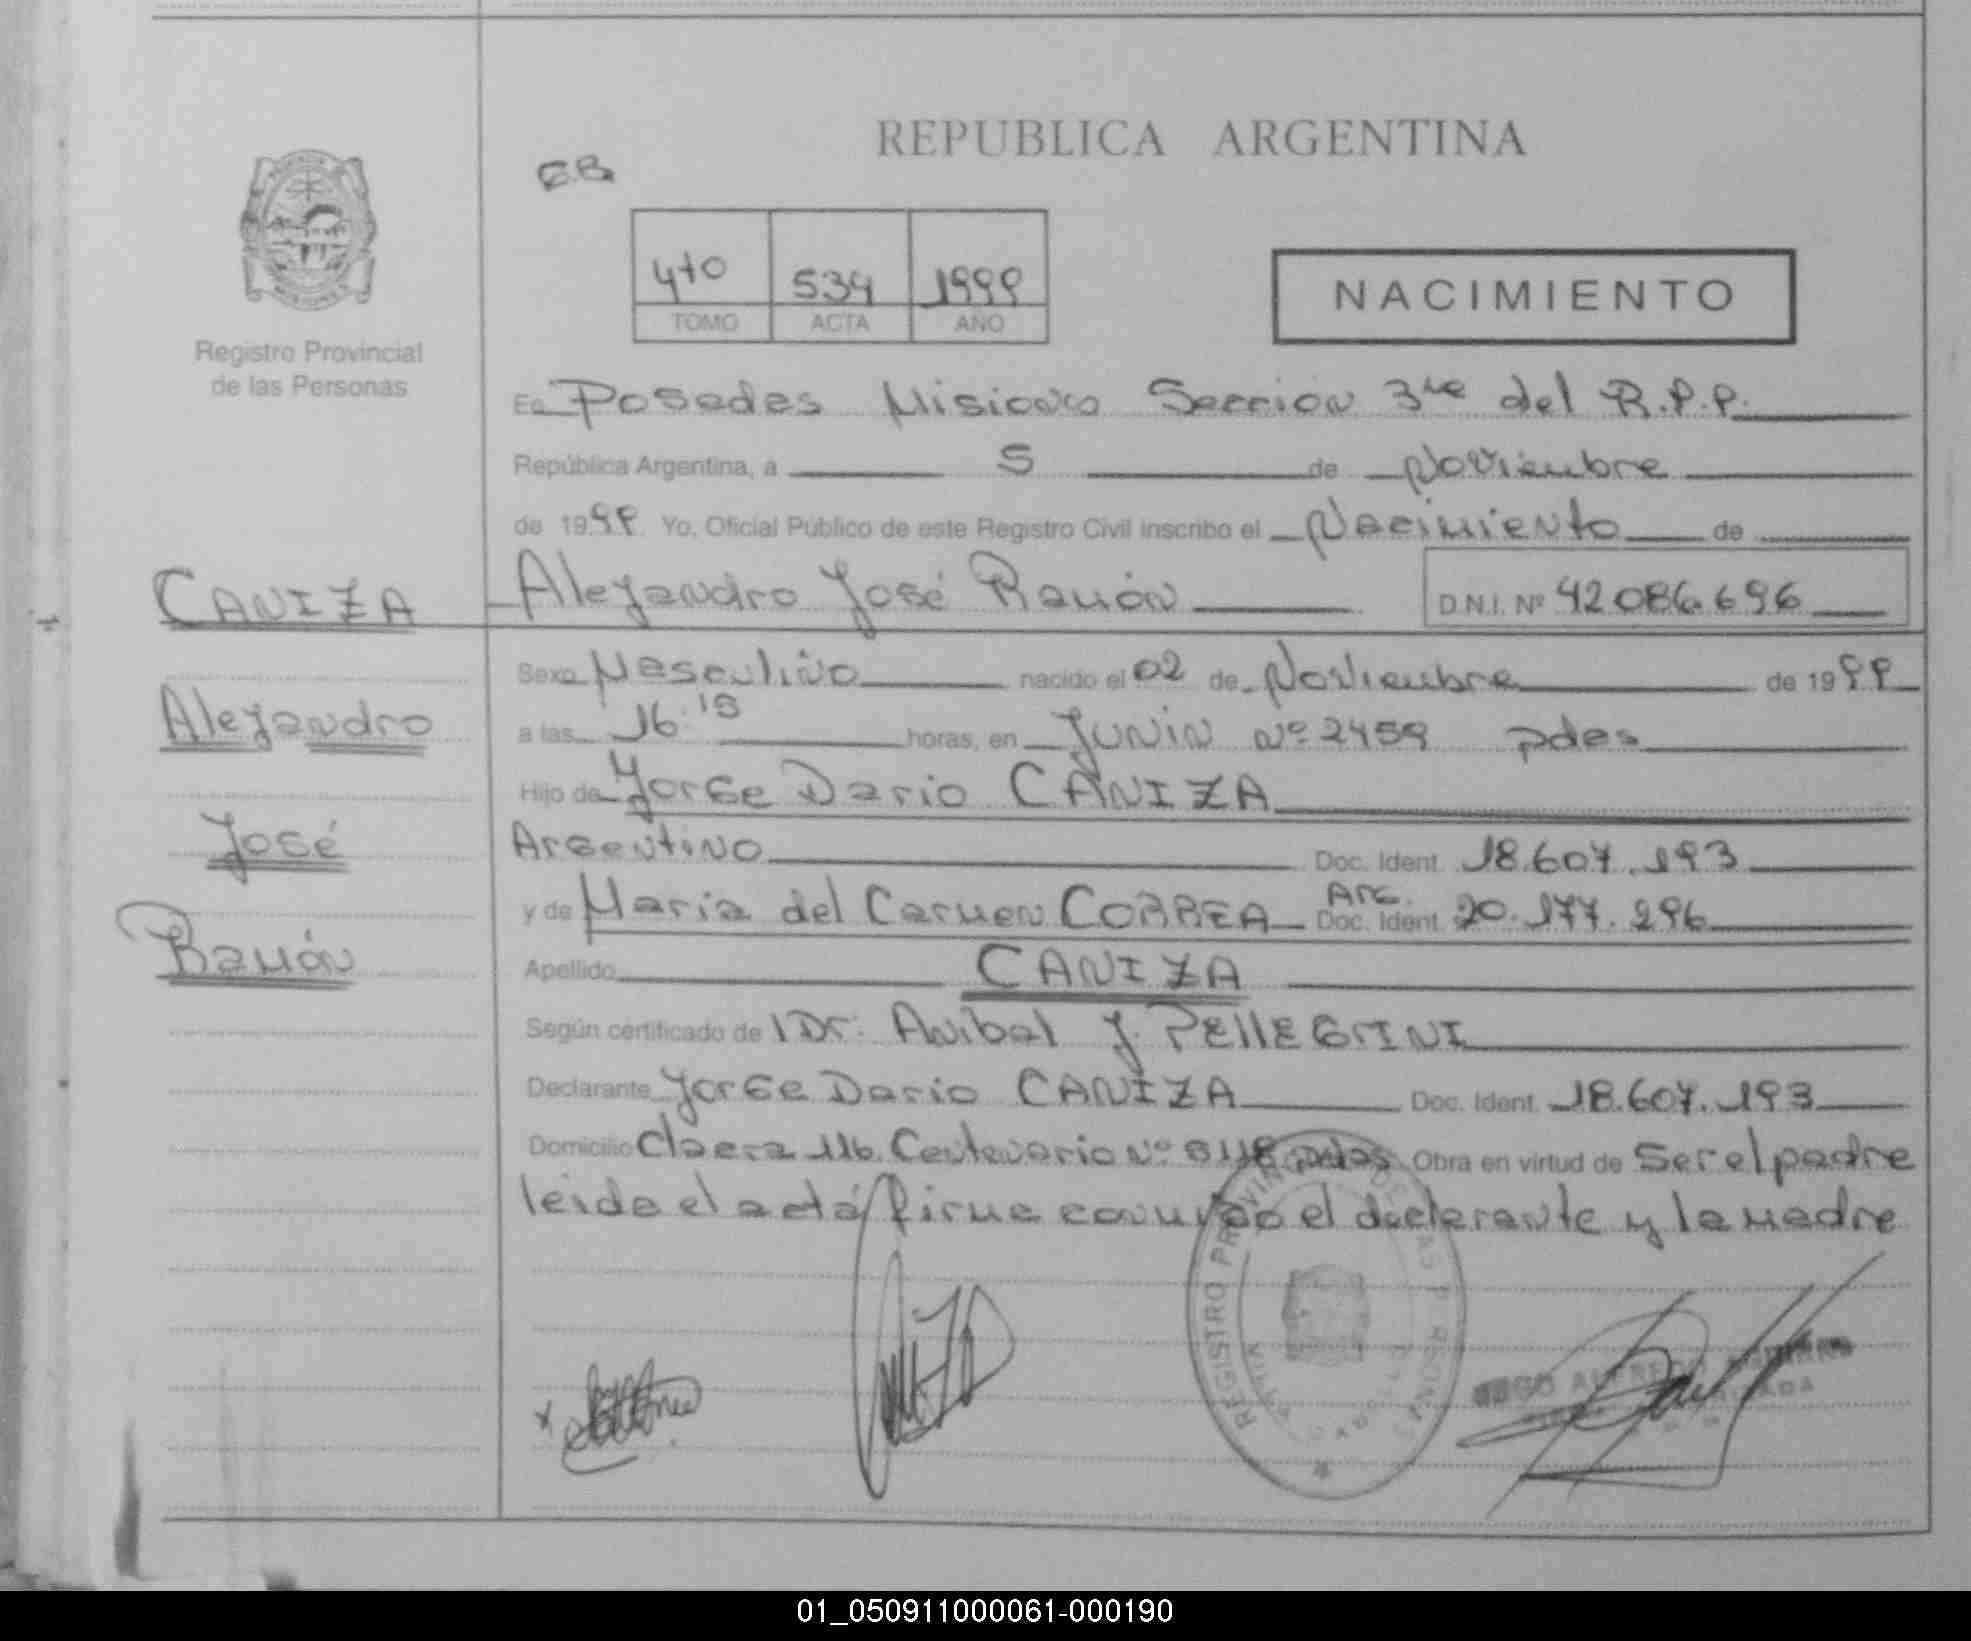 REPUBLICA ARGENTINA
E.B.
4to 534 1999
TOMO ACTA AÑO
NACIMIENTO
Registro Provincial
de las Personas
En Posadas Misiones Sección 3ra del R.P.P.
República Argentina, a 5 de Noviembre
de 1999 Yo, Oficial Público de este Registro Civil inscribo el Nacimiento de
CANIZA Alejandro José Ramón D.N.I. Nº 42086.696
Sexo Masculino nacido el 02 de Noviembre de 1999
Alejandro
a las 16:15 horas, en Junin Nº 2459 pdas
Hijo de Jorge Dario CANIZA
José
Argentino Doc. Ident. 18.607.193
y de Maria del Carmen CORREA Arg. Doc. Ident. 20.177.296
Ramón
Apellido CANIZA
Según certificado de 1 Dr. Anibal J. PELLEGRINI
Declarante Jorge Dario CANIZA Doc. Ident. 18.607.193
Domicilio Chacra 116 Centenario Nº pdas Obra en virtud de Ser el padre
leida el acta firma conmigo el declarante y la madre
REGISTRO PROVINCIAL DE LAS PERSONAS
01_050911000061-000190